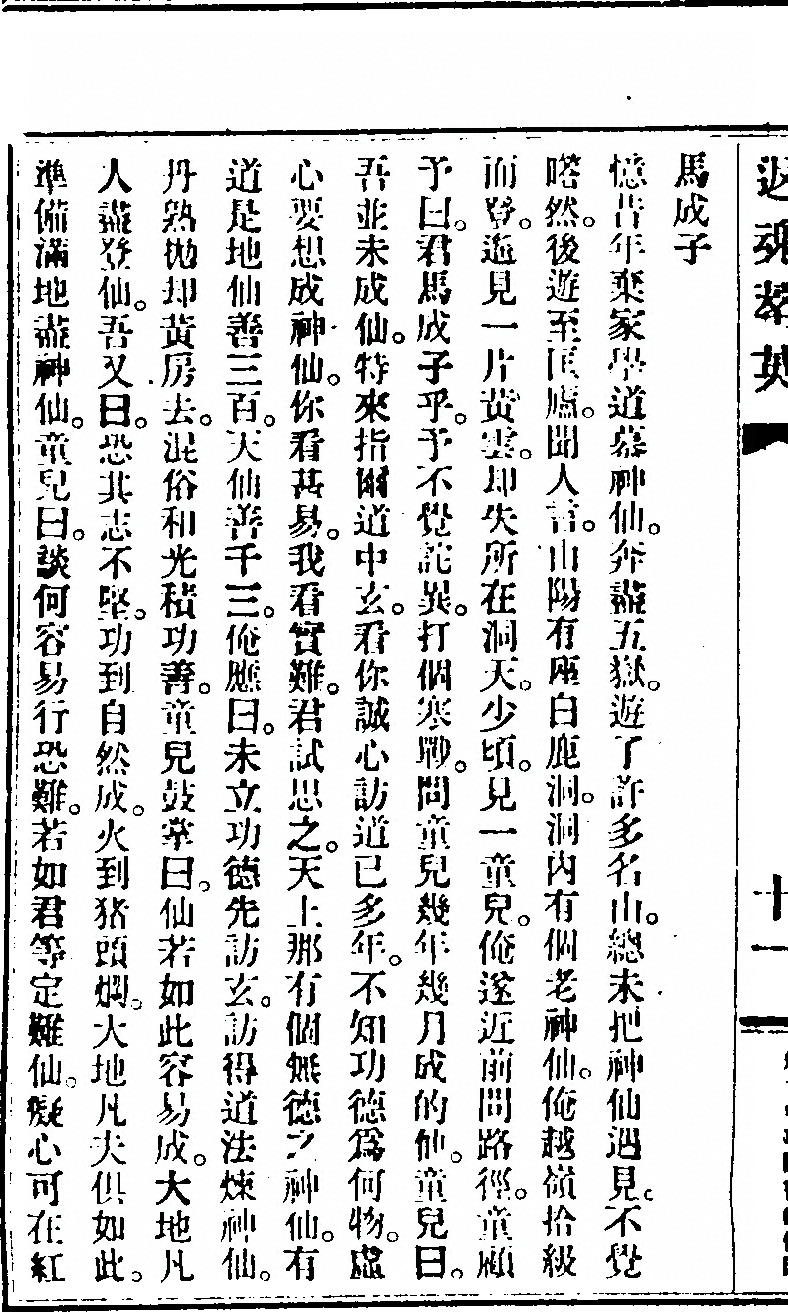 返魂革英
十一
馬成子
憶昔年棄家學道慕神仙。奔盡五嶽。遊了許多名山。總未把神仙遇見。不覺
嗒然。後遊至匡廬。聞人言。山陽有座白鹿洞。洞內有個老神仙。俺越嶺拾級
而登。遥見一片黃雲。却失所在洞天。少頃。見一童兒。俺遂近前問路徑。童顧
予曰。君馬成子乎。予不覺詫異。打個寒戰。問童兒幾年幾月成的仙。童兒曰。
吾並未成仙。特來指爾道中玄。看你誠心訪道已多年。不知功德爲何物。虛
心要想成神仙。你看甚易。我看實難。君試思之。天上那有個無德之神仙。有
道是地仙善三百。天仙善千三。俺應曰。未立功德先訪玄。訪得道法煉神仙。
丹熟拋却黃房去。混俗和光積功善。童兒鼓掌曰。仙若如此容易成。大地凡
人盡登仙。吾又曰。恐其志不堅。功到自然成。火到猪頭爛。大地凡夫俱如此。
準備滿地盡神仙。童兒曰。談何容易行恐難。若如君等定難仙。癡心可在紅